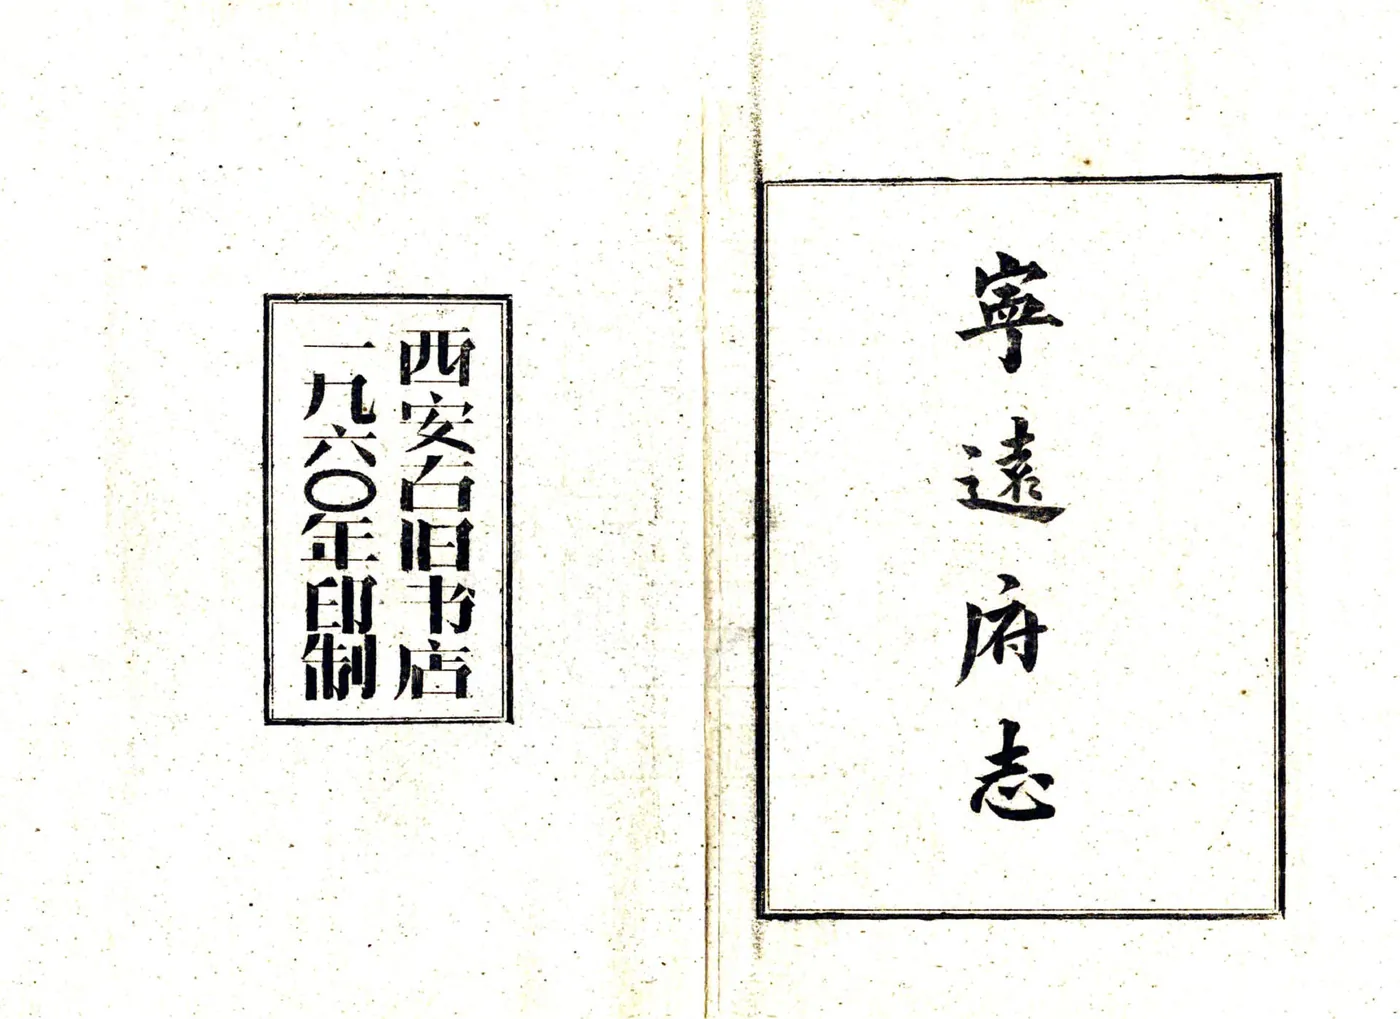 寧遠府志
西安古旧书店
一九六〇年印制